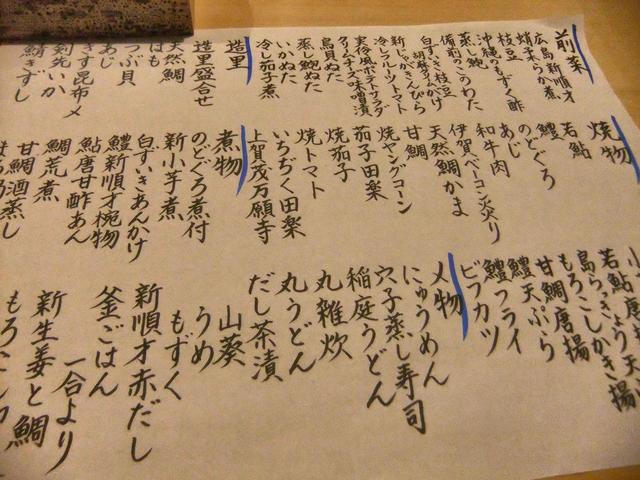 前菜
広島新順才
蛸子柔らか煮
枝豆
沖縄のもずく酢
蒸し鮑
備前このわた
白ずいき枝豆
胡麻クリームかけ
新じゃがきんぴら
冷しフルーツトマト
実伶風ポテトサラダ
クリームチーズ味噌漬
鳥貝ぬた
蒸し鮑ぬた
いかぬた
冷し茄子煮
造里
造里盛合せ
天然鯛
はも
つぶ貝
あじ
きす昆布〆
剣先いか
鯖きずし
焼物
若鮎
鱧
のどぐろ
あじ
和牛肉
伊賀ベーコン炙り
天然鯛かま
甘鯛
焼ヤングコーン
茄子田楽
焼茄子
焼トマト
いちぢく田楽
上賀茂万願寺
煮物
のどぐろ煮付
新小芋煮
白ずいきあんかけ
鱧新順才椀物
鮎唐甘酢あん
鯛荒煮
甘鯛酒蒸し
若鮎唐
島らっきょう天
もろこしかき揚
甘鯛唐揚
鱧天ぷら
鱧フライ
ビフカツ
〆物
にゅうめん
穴子蒸し寿司
稲庭うどん
丸雑炊
丸うどん
だし茶漬
山葵
うめ
もずく
新順才赤だし
釜ごはん
一合より
新生姜と鯛